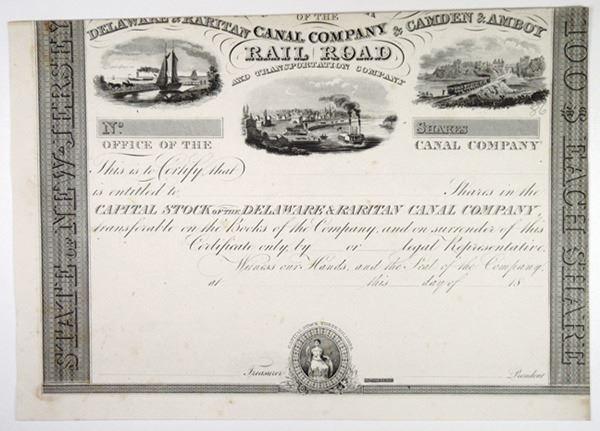 OF THE
DELAWARE & RARITAN CANAL COMPANY & CAMDEN & AMBOY
RAIL ROAD
AND TRANSPORTATION COMPANY
No.
SHARES
86
OFFICE OF THE CANAL COMPANY
This is to Certify, that
is entitled to Shares in the
CAPITAL STOCK OF THE DELAWARE & RARITAN CANAL COMPANY,
transferable on the Books of the Company, and on surrender of this
Certificate only, by or legal Representative.
Witness our Hands, and the Seal of the Company,
at this day of 18
Treasurer
President
STATE OF NEW-JERSEY
100 $ EACH SHARE